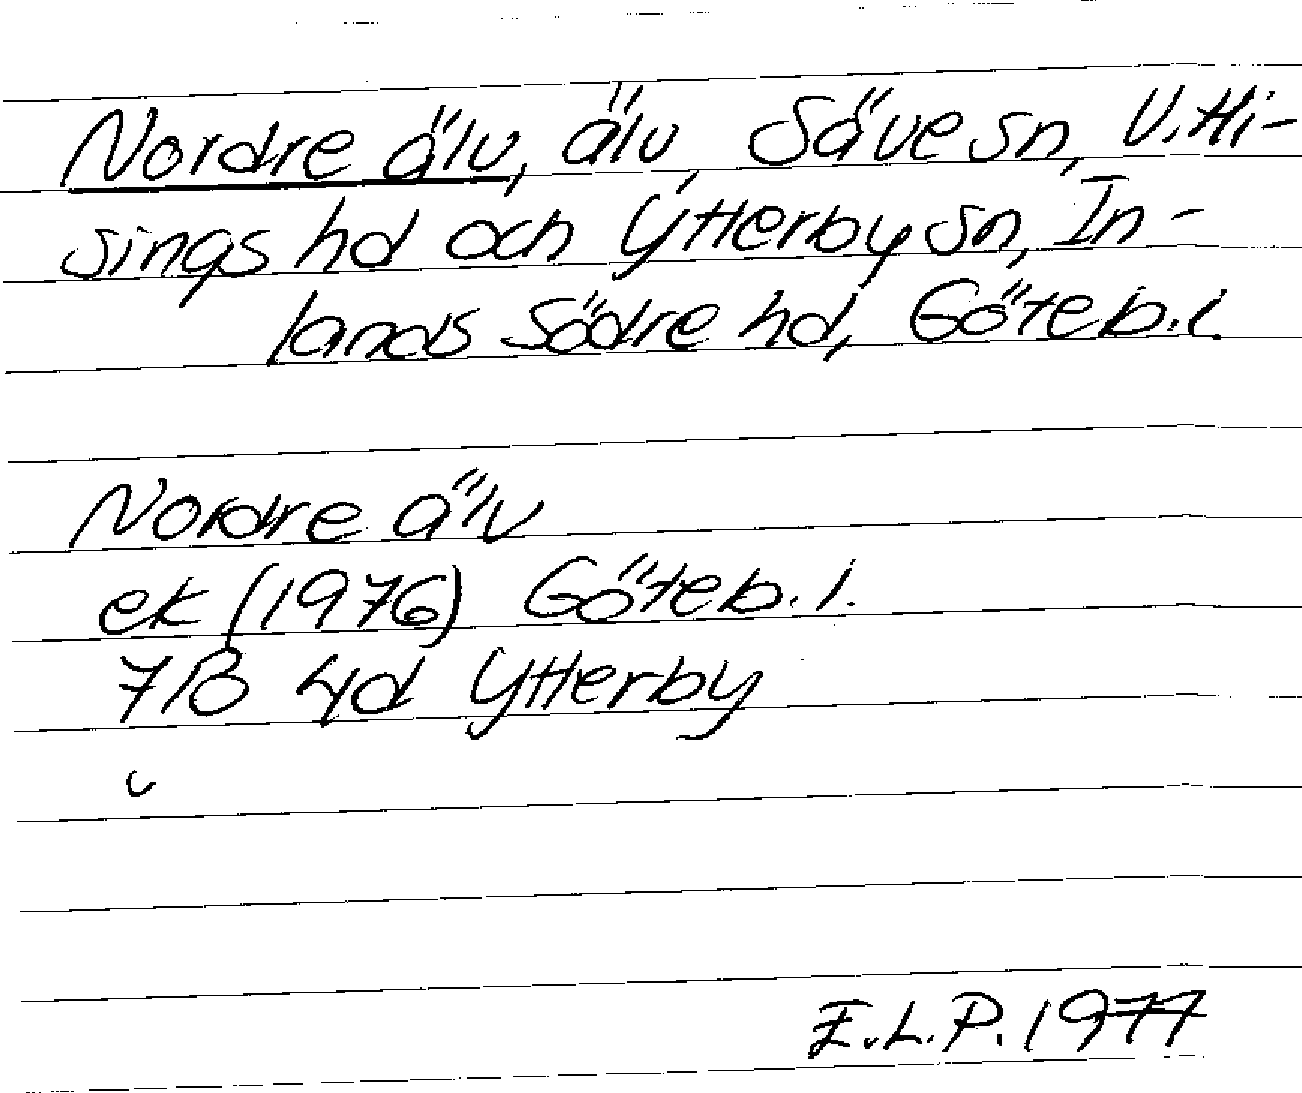 Nordre älv, älv, Säve sn, V. Hi-
sings hd och Ytterby sn, In-
lands Södre hd, Göteb. l.
Nordre älv
ek (1976) Göteb. l.
7B 4d Ytterby
E.L.P. 1977